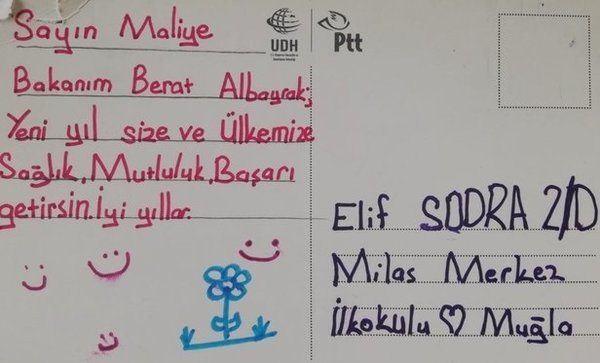 Sayın Maliye
Bakanım Berat Albayrak;
Yeni yıl size ve Ülkemize
Sağlık, Mutluluk, Başarı
getirsin. İyi yıllar.
UDH
Ptt
Elif SODRA 2/D
Milas Merkez
İlkokulu ♡ Muğla